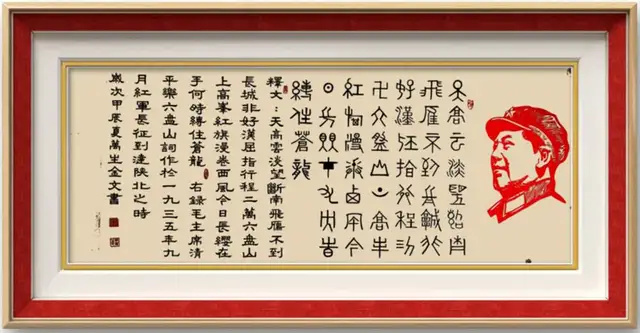 天高云淡望斷南
飛雁不到長城非
好漢屈指行程二
万六盤山上高峰
紅旗漫卷西風今
日長纓在手何時
縛住蒼龍
釋文：天高雲淡望斷南飛雁不到
長城非好漢屈指行程二萬六盤山
上高峯紅旗漫卷西風今日長纓在
手何時縛住蒼龍 右錄毛主席清
平樂六盤山詞作於一九三五年九
月紅軍長征到達陝北之時
歲次甲辰夏萬生金文書